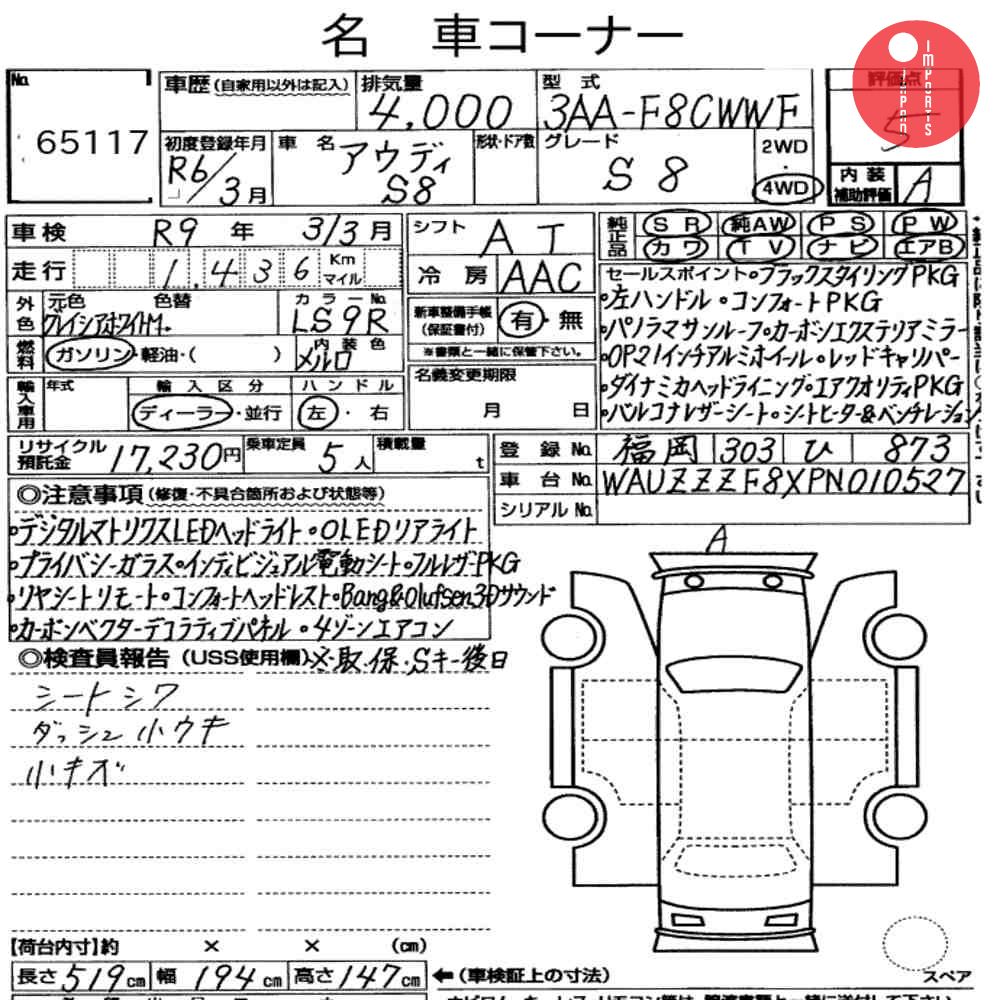 名 車コーナー
IMPORTS JAPAN
No. 65117
車歴(自家用以外は記入) 排気量 4,000 型式 3AA-F8CWWF 評価点 5
初度登録年月 R6/3月 車名 アウディ S8 形状・ドア数 グレード S8 2WD・4WD
内装補助評価 A
車検 R9年 3/3月 シフト AT 純正品 SR 純AW PS PW
カワ TV ナビ エアB
走行 1,436 Km マイル 冷房 AAC
外色 元色 グレイシアホワイトM. 色替 カラーNo. LS9R
内装色 メルロ
燃料 ガソリン・軽油・( )
新車整備手帳(保証書付) 有・無
※書類と一緒に保管下さい。
輸入車用 年式 輸入区分 ディーラー・並行 ハンドル 左・右
名義変更期限 月 日
セールスポイント・ブラックスタイリングPKG
・左ハンドル・コンフォートPKG
・パノラマサンルーフ・カーボンエクステリアミラー
・OP21インチアルミホイール・レッドキャリパー
・ダイナミカヘッドライニング・エアクオリティPKG
・バルコナレザーシート・シートヒーター&ベンチレーション
リサイクル預託金 17,230円 乗車定員 5人 積載量 t
登録No. 福岡 303 ひ 873
車台No. WAUZZZF8XPN010527
シリアルNo.
◎注意事項(修復・不具合箇所および状態等)
・デジタルマトリクスLEDヘッドライト・OLEDリアライト
・プライバシーガラス・インディビジュアル電動シート・フルレザーPKG
・リヤシートリモート・コンフォートヘッドレスト・Bang&Olufsen3Dサウンド
・カーボンベクターデコラティブパネル・4ゾーンエアコン
◎検査員報告(USS使用欄)※取・保・Sキー後日
シートシワ
ダッシュ小ウキ
小キズ
A
【荷台内寸】約 × × (cm)
長さ 519cm 幅 194cm 高さ 147cm ←(車検証上の寸法)
スペア